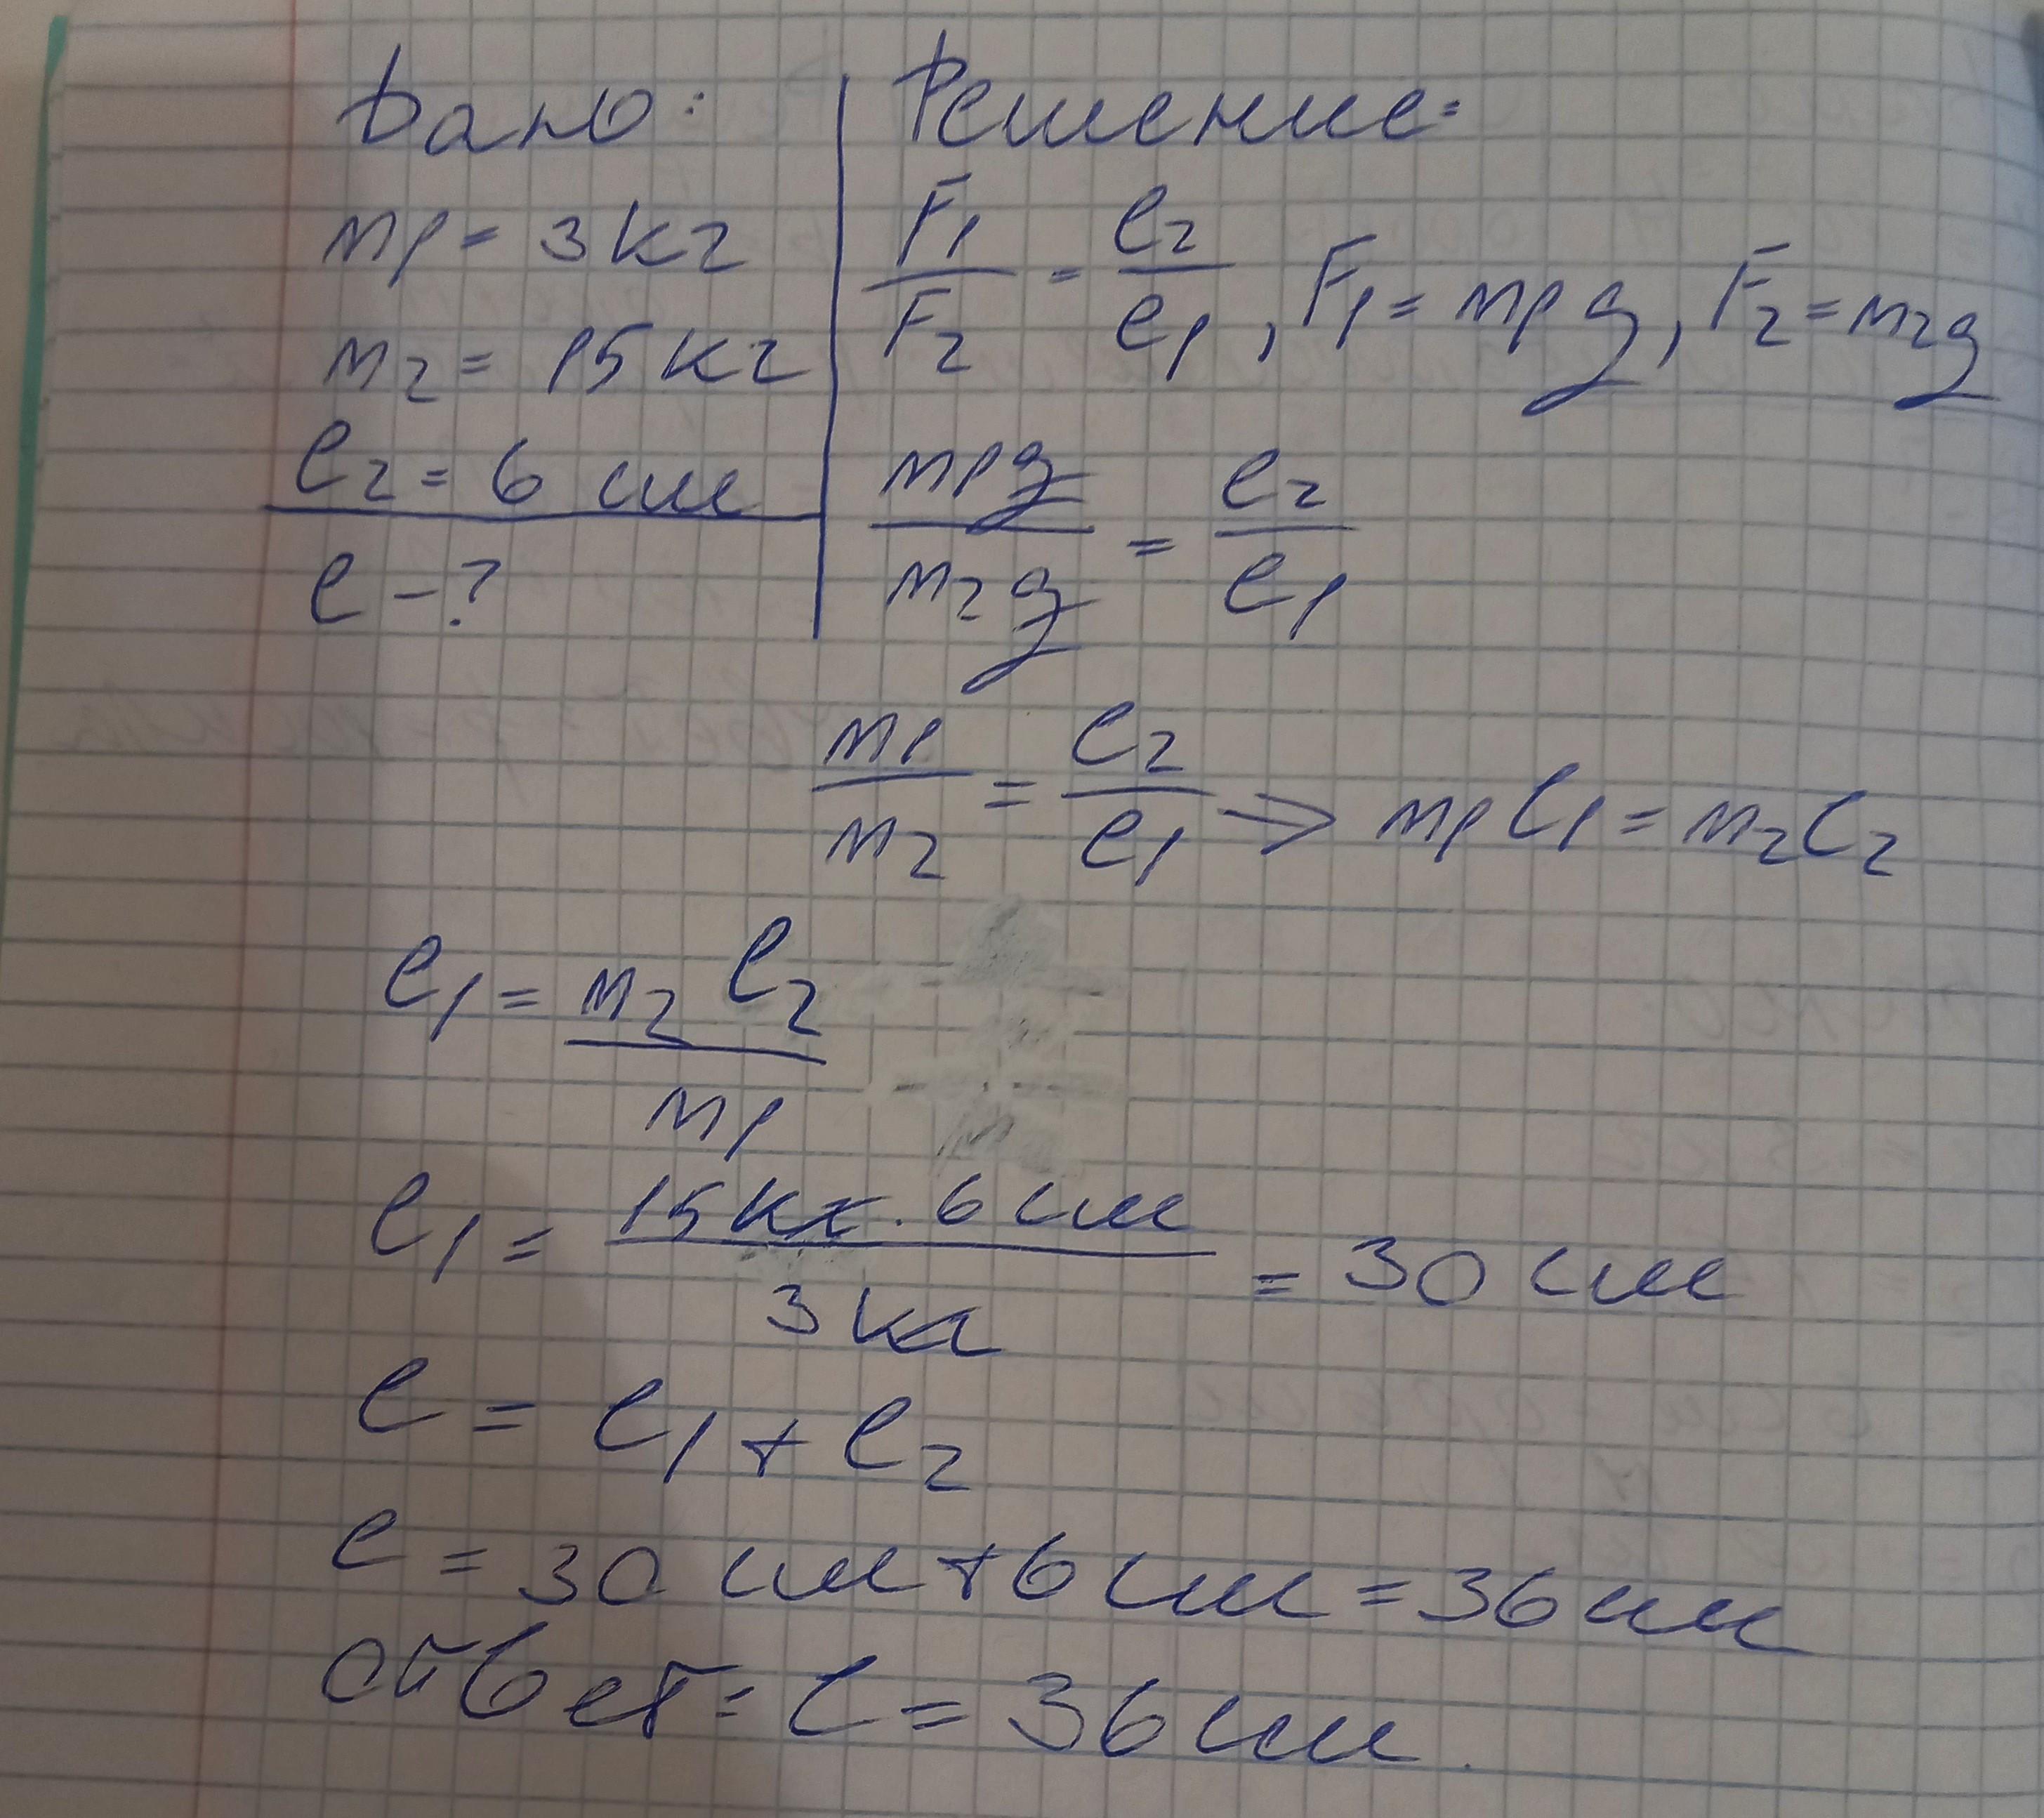 Дано:
m₁ = 3 кг
m₂ = 15 кг
l₂ = 6 см
l - ?
Решение:
F₁/F₂ = l₂/l₁, F₁ = m₁g, F₂ = m₂g
m₁g/m₂g = l₂/l₁
m₁/m₂ = l₂/l₁ => m₁l₁ = m₂l₂
l₁ = m₂l₂/m₁
l₁ = 15 кг · 6 см/3 кг = 30 см
l = l₁ + l₂
l = 30 см + 6 см = 36 см
ответ: l = 36 см.